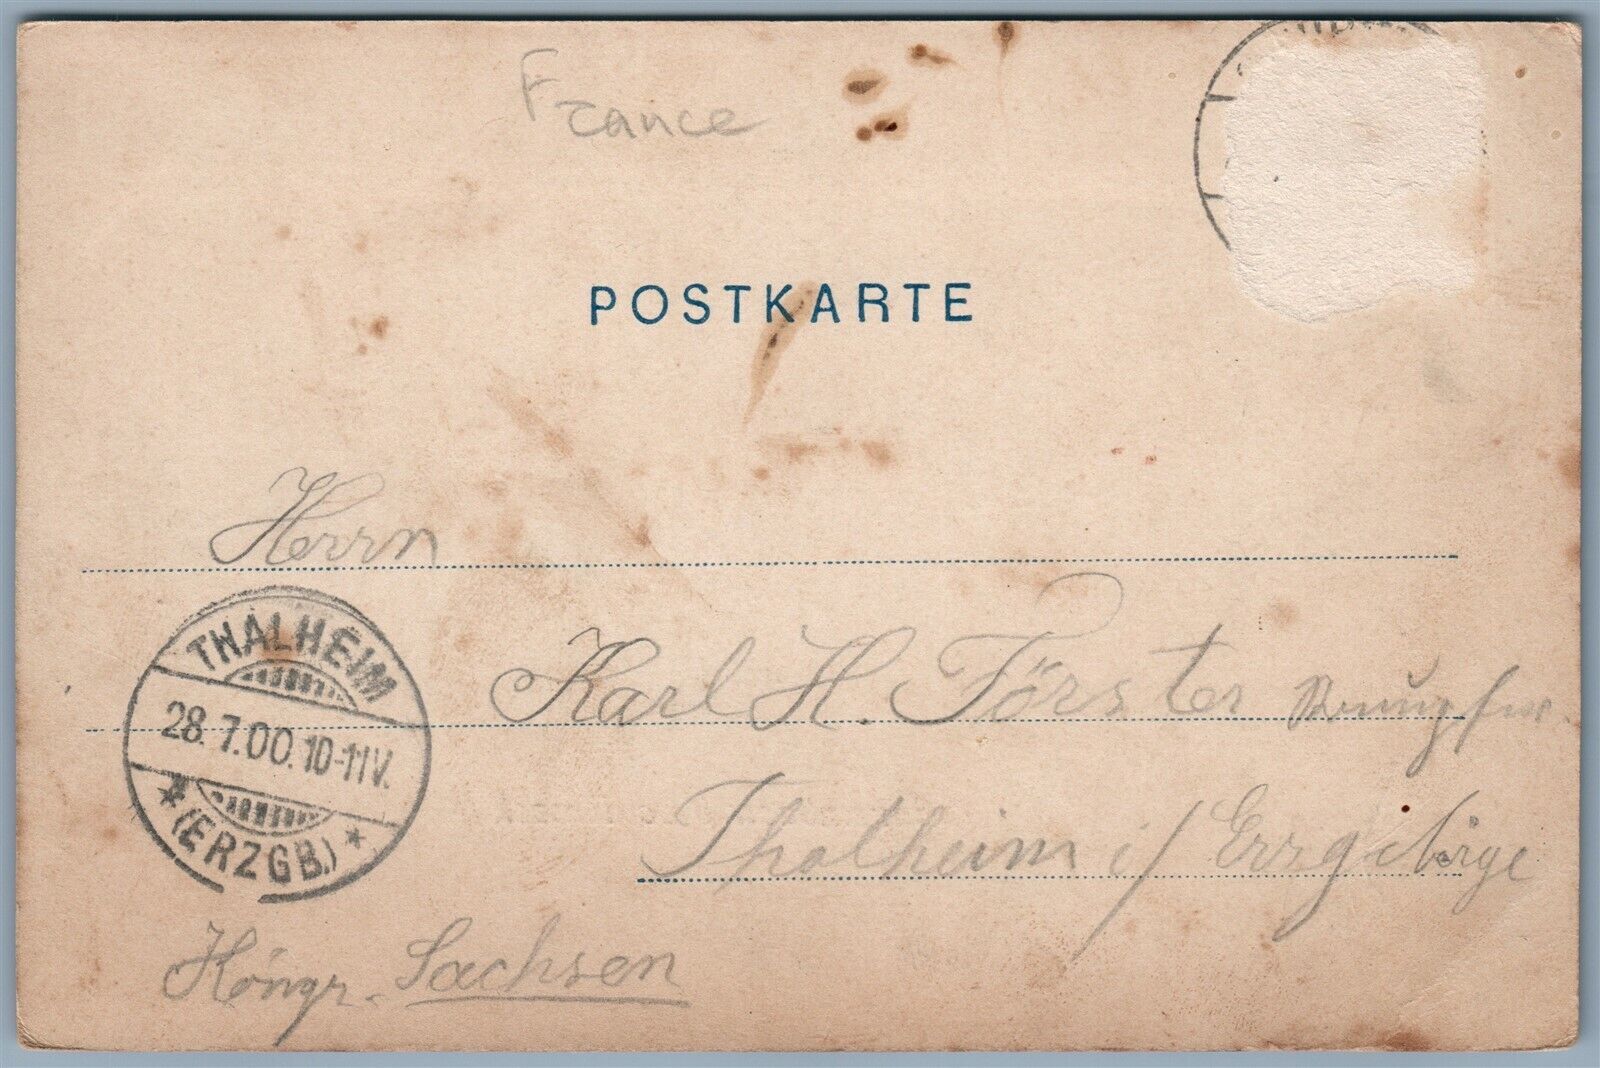 France
POSTKARTE
Herrn
Karl H. Förster
Thalheim i/Erzgebirge
Köngr. Sachsen
THALHEIM
28.7.00.10-11V.
* (ERZGB.) *